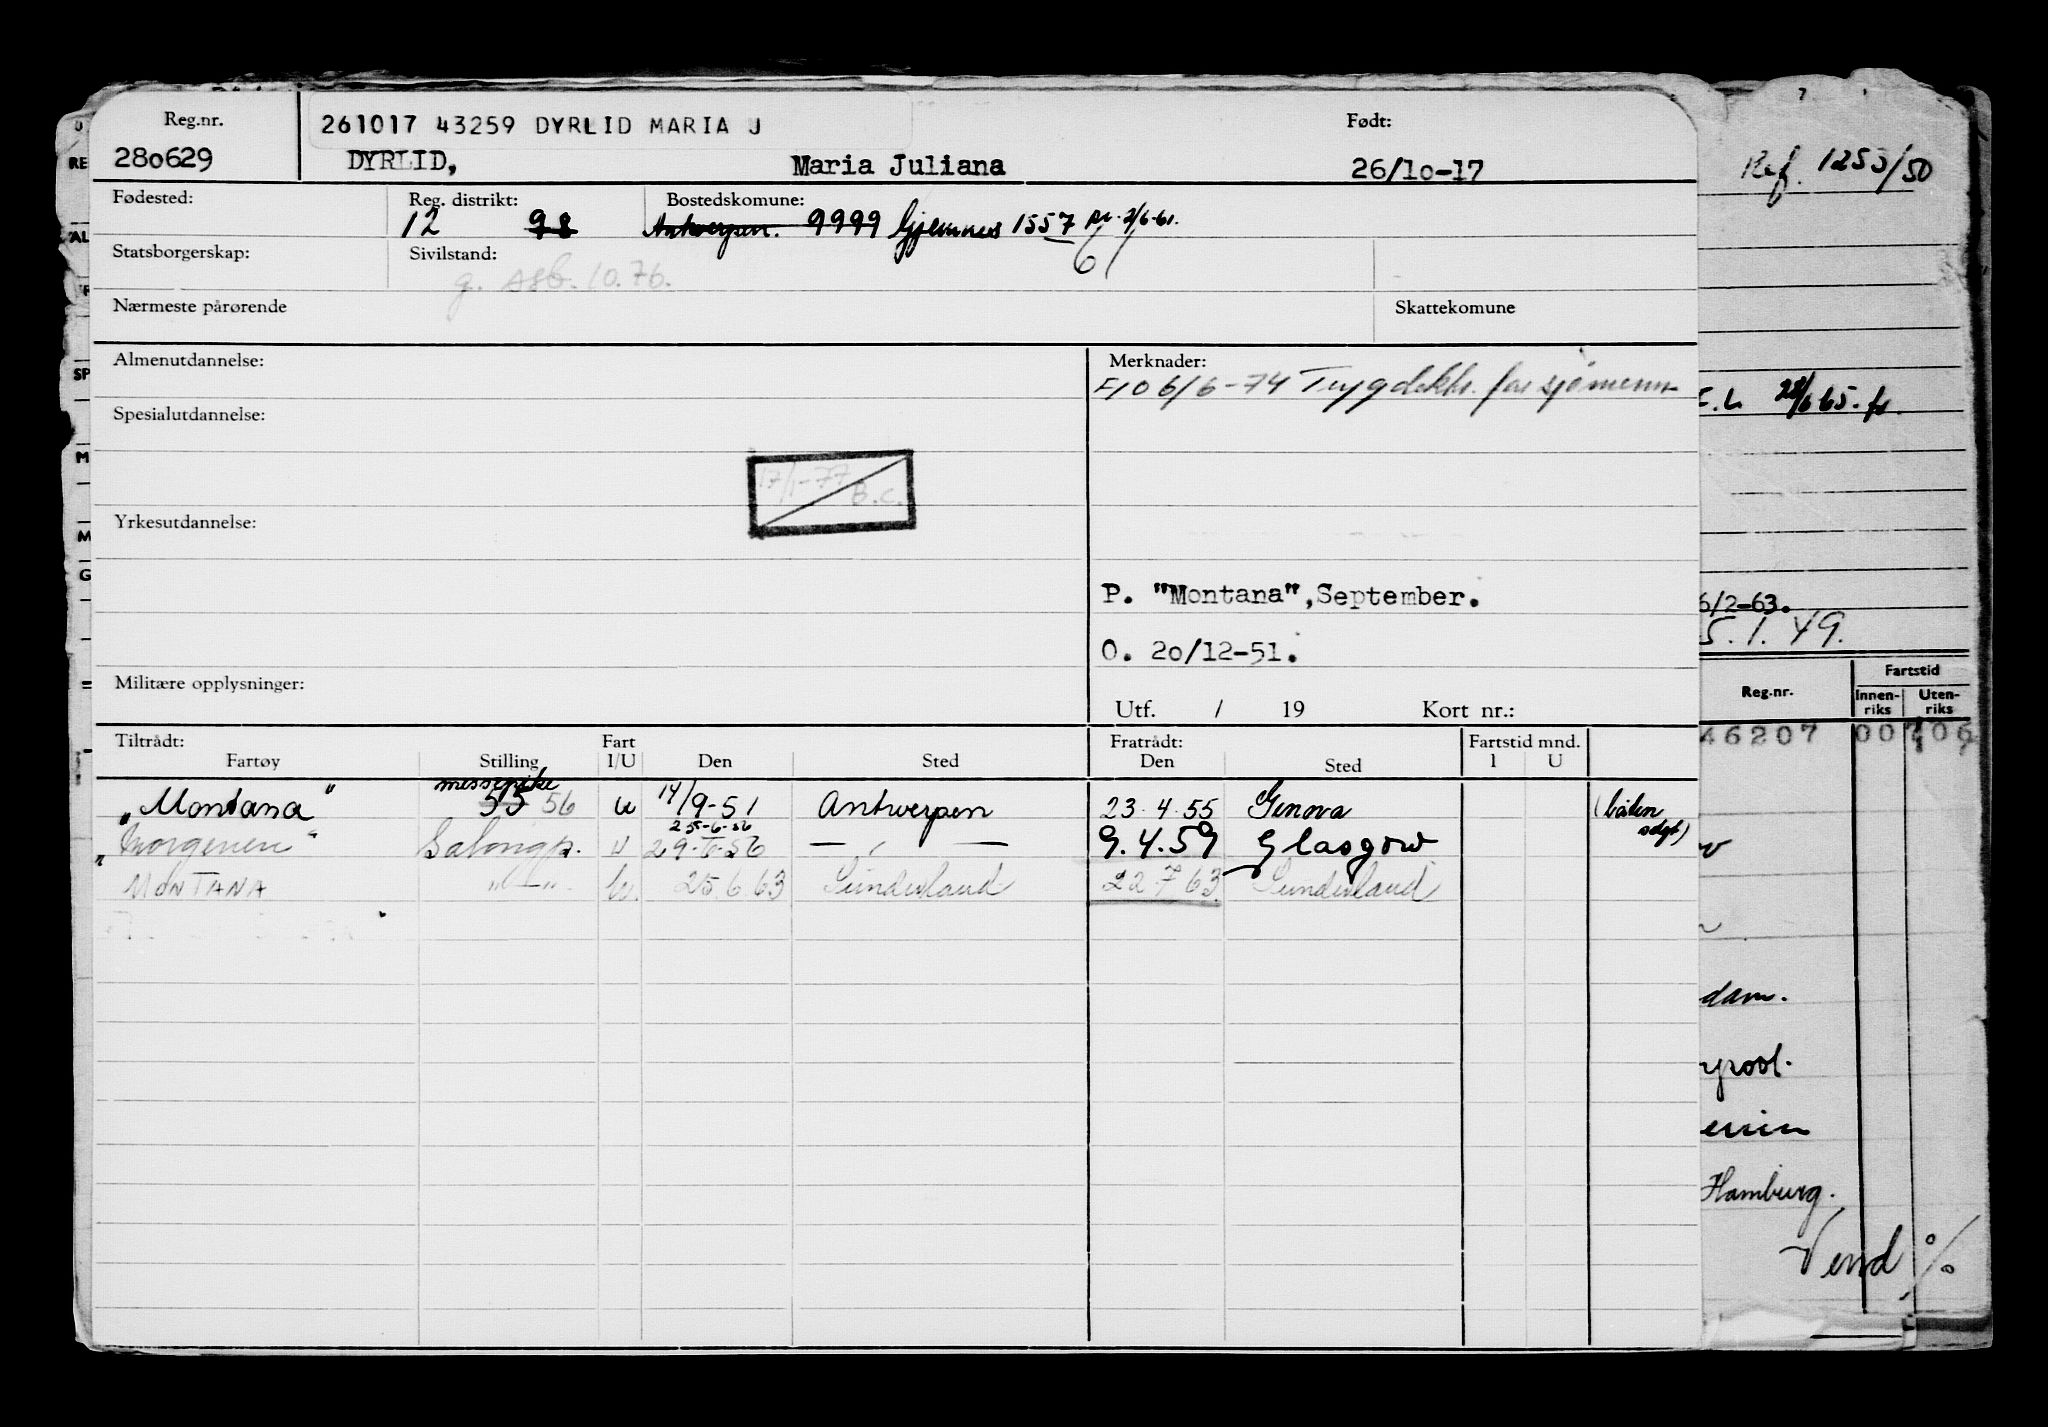 Reg.nr.
280629
261017 43259 DYRLID MARIA J
DYRLID, Maria Juliana
Født:
26/10-17
Fødested:
Reg. distrikt:
12 98
Bostedskomune:
Antwerpen. 9999 Gjemnes 1557 2/6-61.
61
Statsborgerskap:
Sivilstand:
g. 10.76.
Nærmeste pårørende
Skattekomune
Almenutdannelse:
Spesialutdannelse:
17/1-77 B.C.
Yrkesutdannelse:
Militære opplysninger:
Merknader:
F10 6/6-74 Trygdektr. for sjømenn
P. "Montana",September.
O. 20/12-51.
Utf. / 19 Kort nr.:
Tiltrådt:
Fartøy Stilling Fart I/U Den Sted
Fratrådt:
Den Sted
Fartstid mnd.
I U
messepike
"Montana" 55 56 u 14/9-51 Antwerpen 23.4.55 Genova (båten solgt)
25-6-56
"Norgenen" Salongp. u 29-6-56 — " — 9.4.59 Glasgow
MONTANA "—" u. 25.6.63 Sunderland 22 7 63 Sunderland
7
Ref. 1253/50
28/6 65. fr.
6/2-63.
5.1.49.
Reg.nr.
Fartstid
Innen-riks Uten-riks
46207 00
dam.
Hamburg.
Vend %
RE
AL
SP
M
M
G